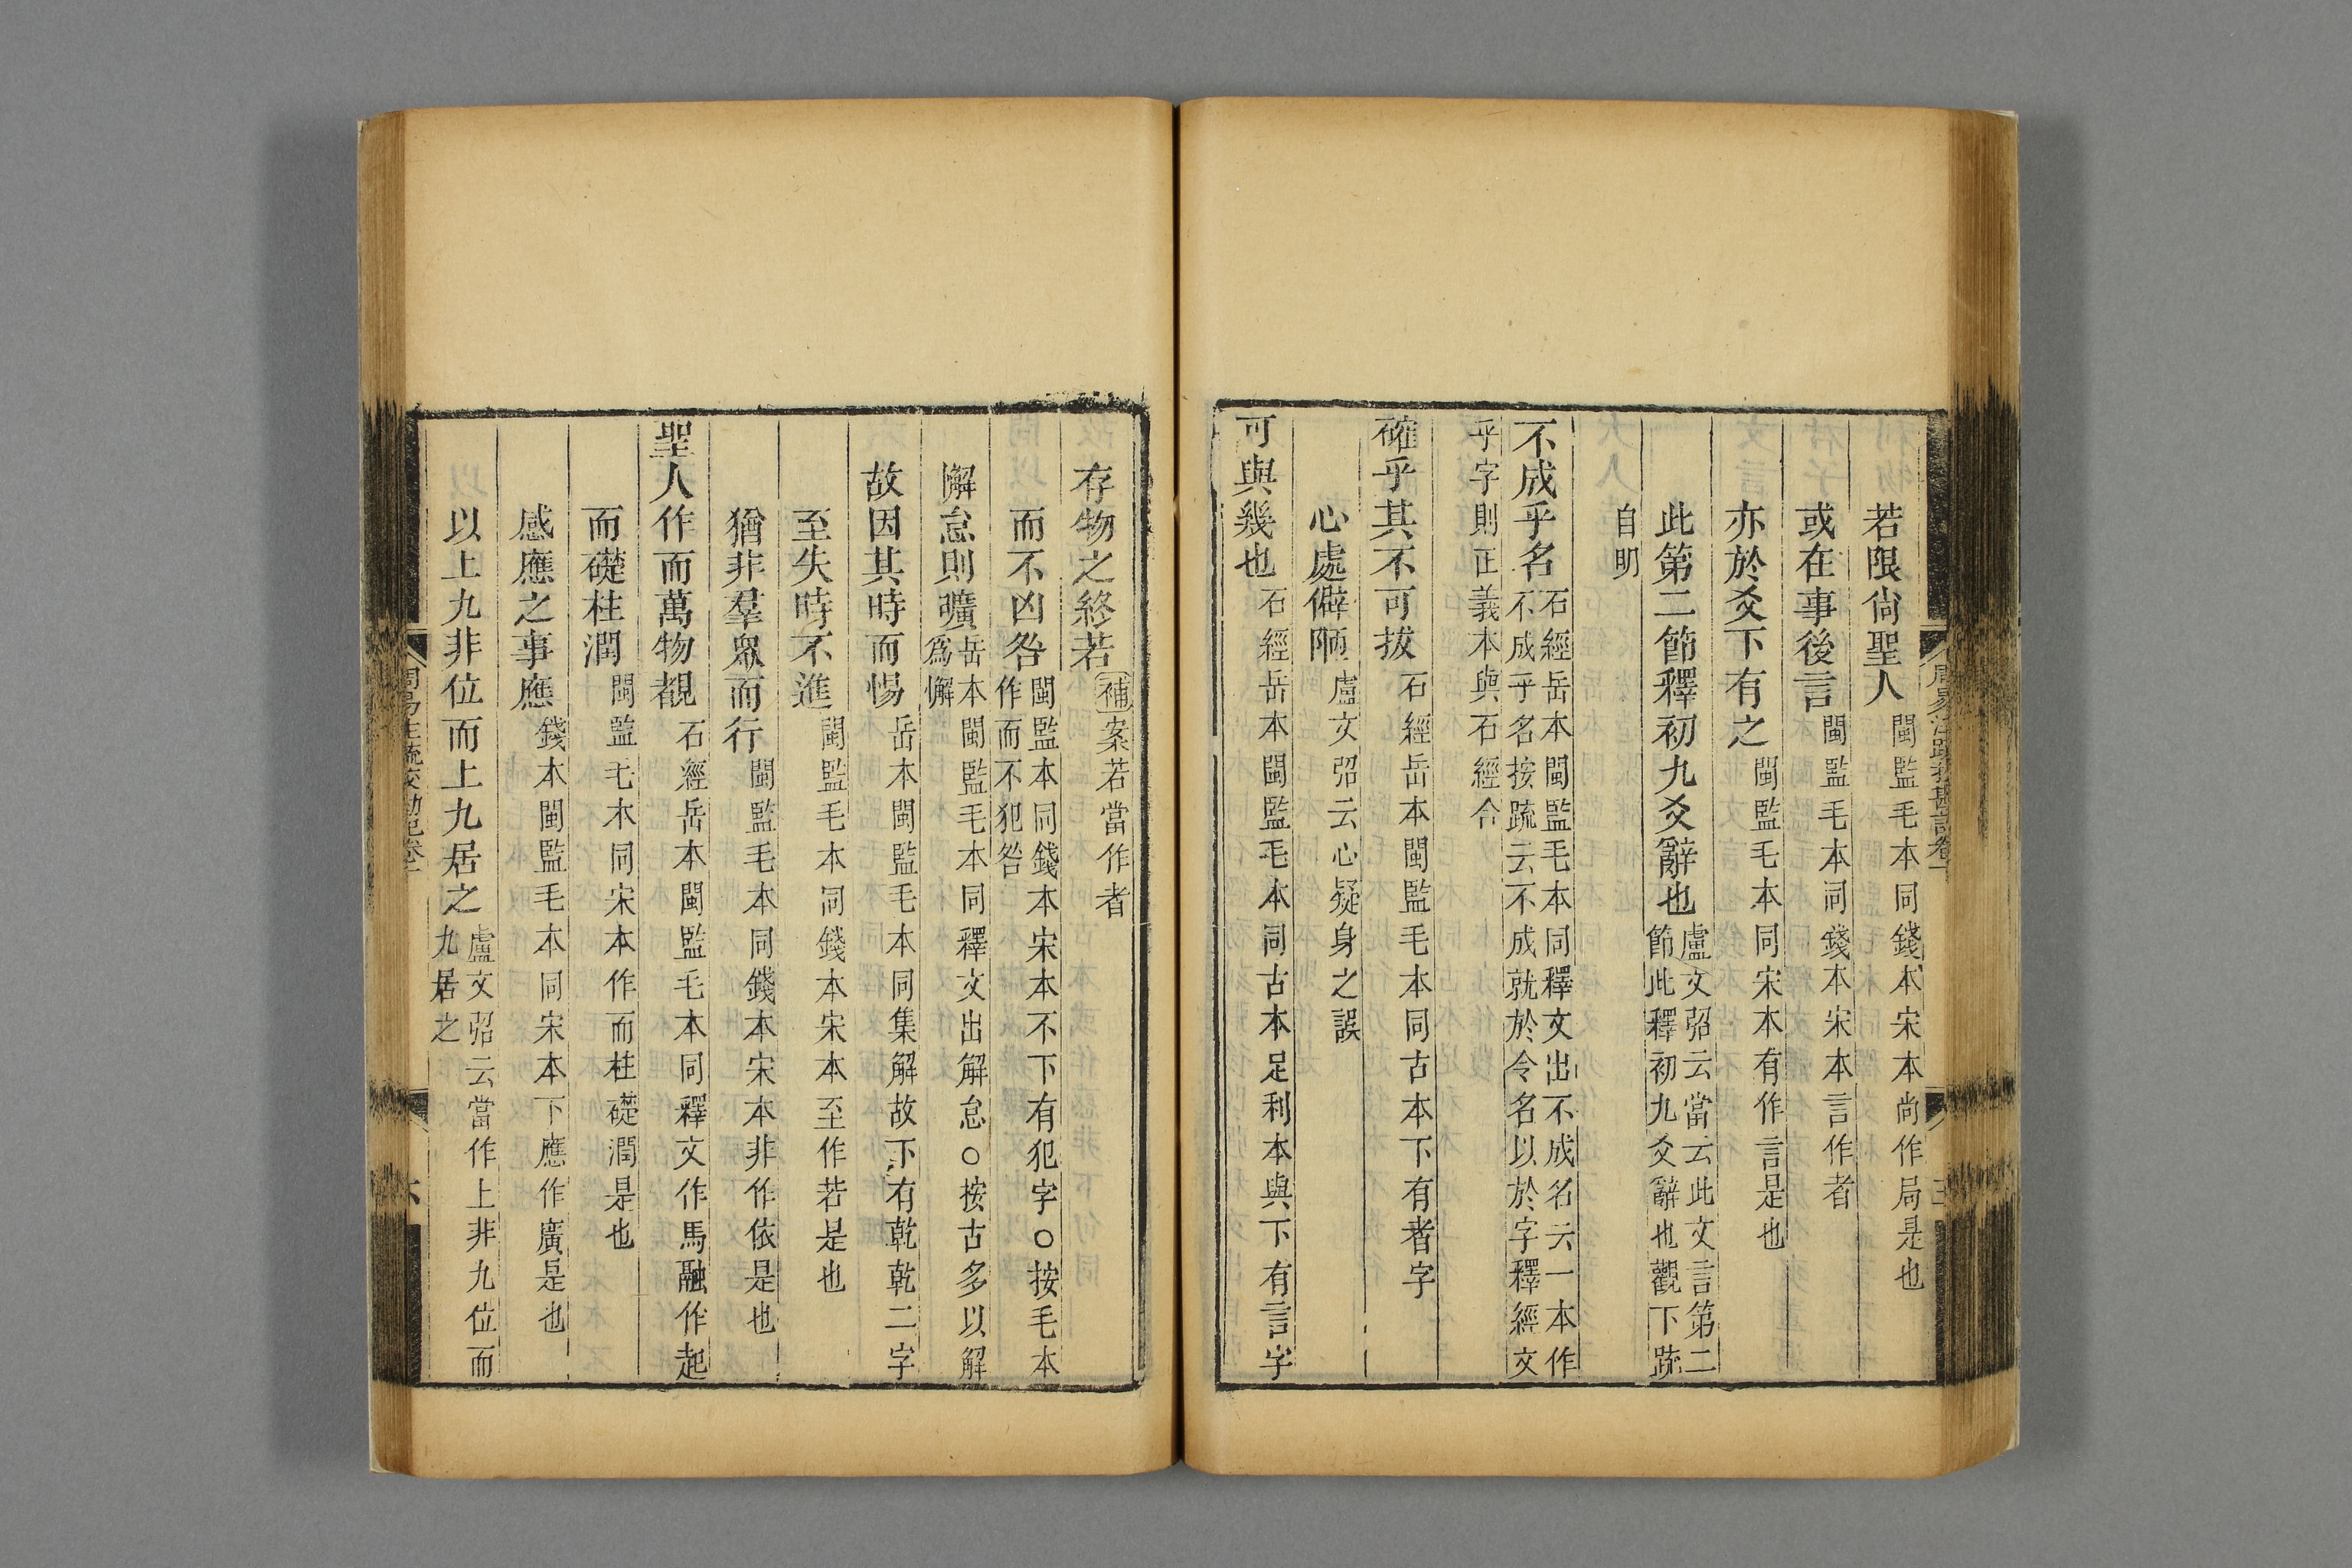 若限尙聖人閩監毛本同錢本宋本尙作局是也
或在事後言閩監毛本同錢本宋本言作者
亦於爻下有之閩監毛本同宋本有作言是也
此第二節釋初九爻辭也盧文弨云當云此文言第二
節此釋初九爻辭也觀下疏
自明
不成乎名石經岳本閩監毛本同釋文出不成名云一本作
不成乎名按疏云不成就於令名以於字釋經文
乎字則正義本與石經合
確乎其不可拔石經岳本閩監毛本同古本下有者字
心處僻陋盧文弨云心疑身之誤
可與幾也石經岳本閩監毛本同古本足利本與下有言字
存物之終若補案若當作者
而不凶咎閩監本同錢本宋本不下有犯字○按毛本
作而不犯咎
懈怠則曠岳本閩監毛本同釋文出解怠○按古多以解
爲懈
故因其時而惕岳本閩監毛本同集解故下有乾乾二字
至失時不進閩監毛本同錢本宋本至作若是也
猶非羣衆而行閩監毛本同錢本宋本非作依是也
聖人作而萬物覩石經岳本閩監毛本同釋文作馬融作起
而礎柱潤閩監毛本同宋本作而柱礎潤是也
感應之事應錢本閩監毛本同宋本下應作廣是也
以上九非位而上九居之盧文弨云當作上非九位而
九居之
周易注疏校勘記卷一
六